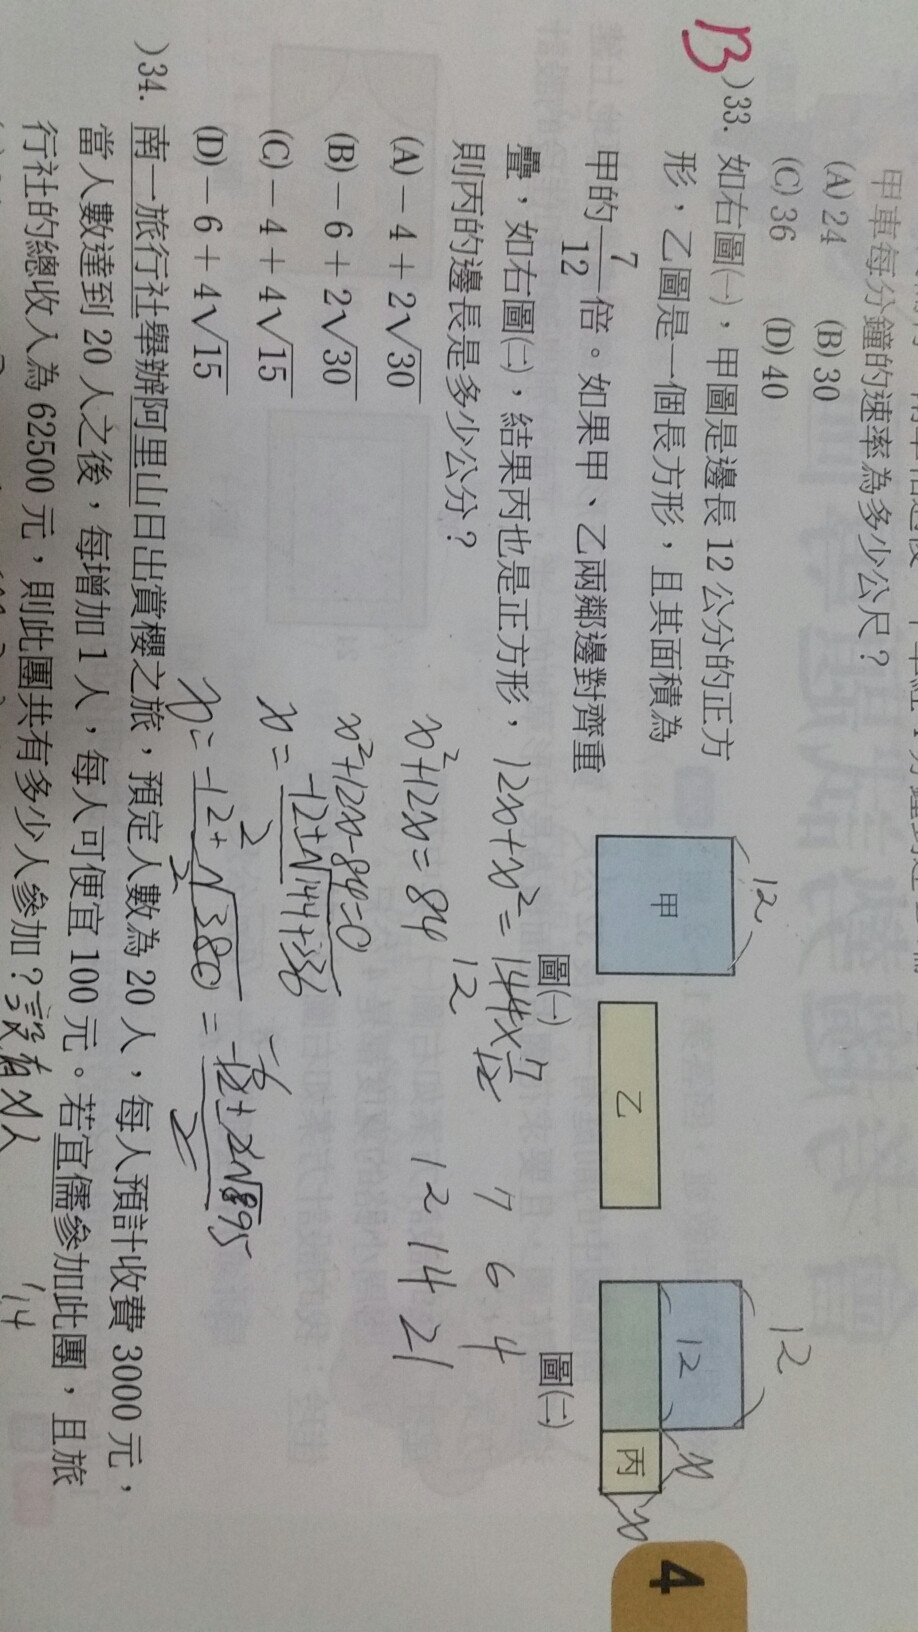 甲車每分鐘的速率為多少公尺？
(A) 24 (B) 30
(C) 36 (D) 40
B )33. 如右圖㈠，甲圖是邊長 12 公分的正方
形，乙圖是一個長方形，且其面積為
甲的 7/12 倍。如果甲、乙兩鄰邊對齊重
疊，如右圖㈡，結果丙也是正方形，
則丙的邊長是多少公分？
(A) －4＋2√30
(B) －6＋2√30
(C) －4＋4√15
(D) －6＋4√15
12
甲
乙
圖㈠
12
12
x
丙
x
圖㈡
4
12x+x²=144×7/12
12
x²+12x=84
x²+12x-84=0
7 6 4
12 14 21
)34. 南一旅行社舉辦阿里山日出賞櫻之旅，預定人數為 20 人，每人預計收費 3000 元，
當人數達到 20 人之後，每增加 1 人，每人可便宜 100 元。若宜儒參加此團，且旅
行社的總收入為 62500 元，則此團共有多少人參加？設有x人
14